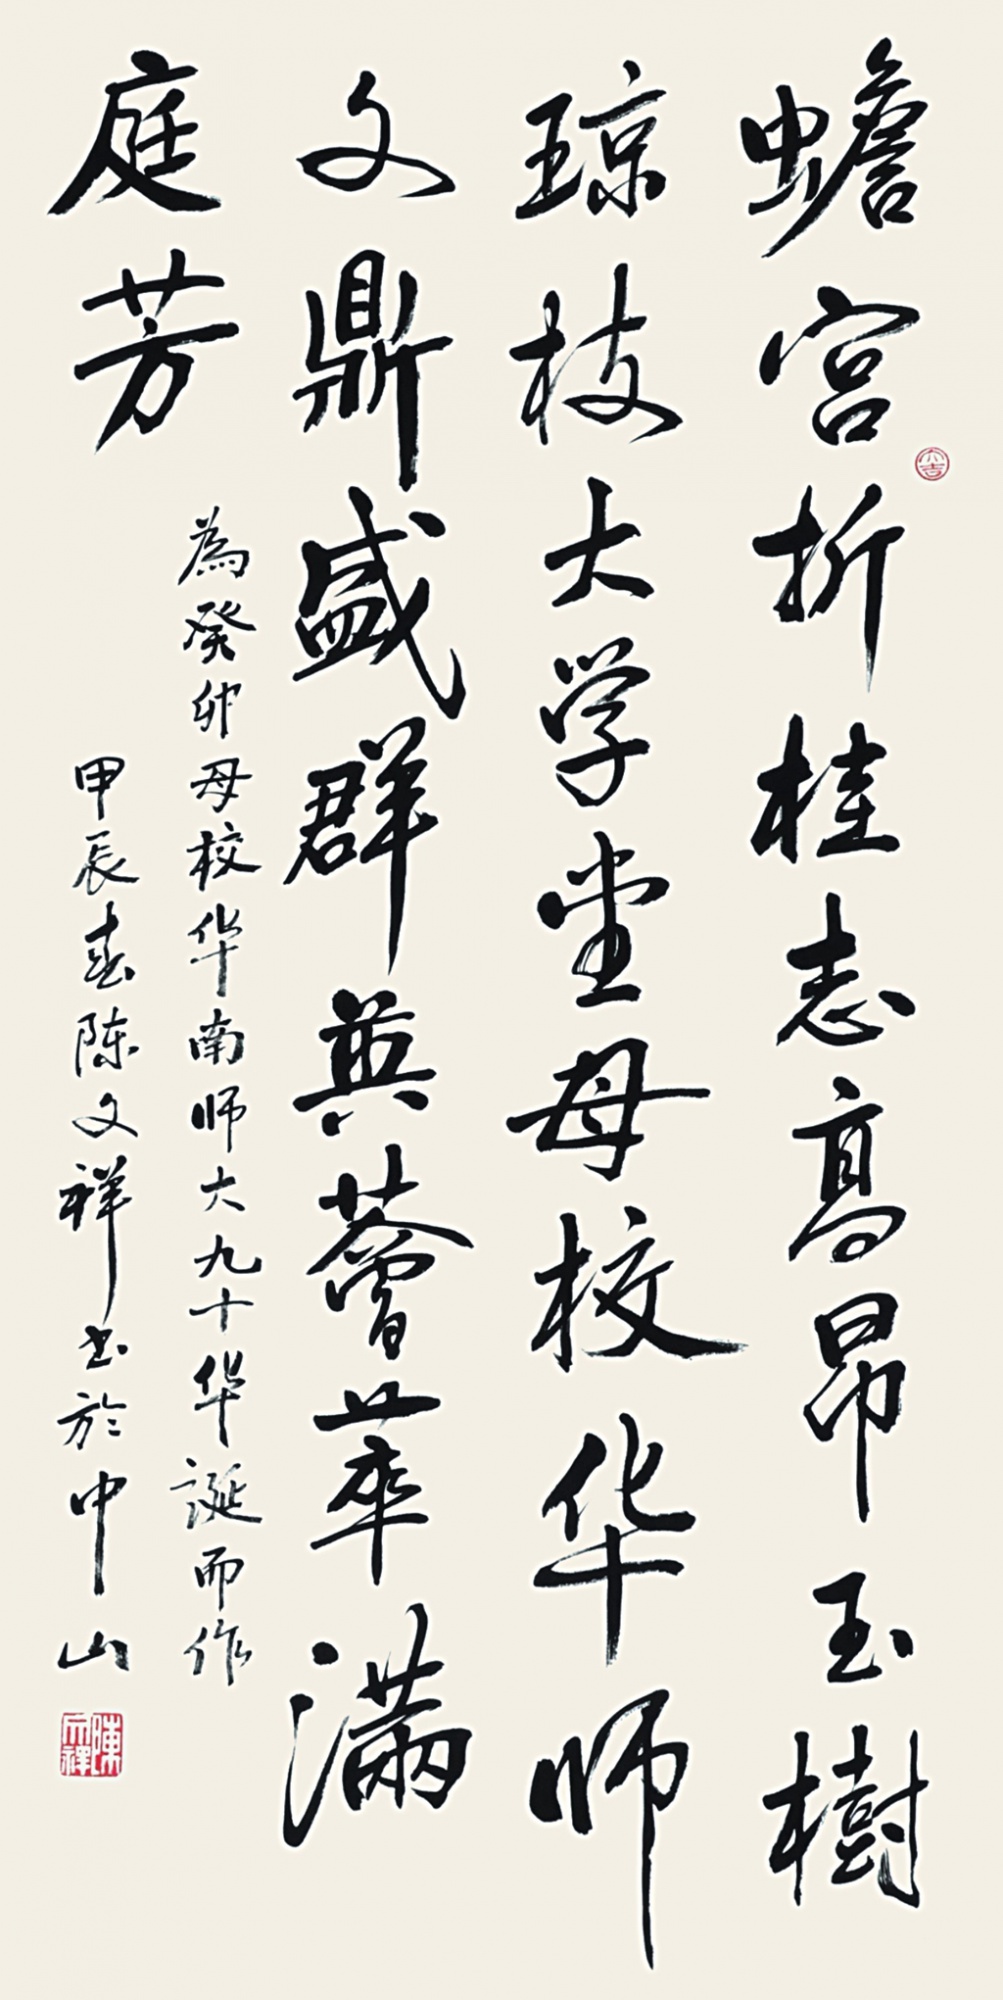 蟾宫折桂志高昂玉樹
琼枝大学堂母校华师
文鼎盛群英薈華满
庭芳
為癸卯母校华南师大九十华诞而作
甲辰春陈文祥书於中山
大吉
陳文祥